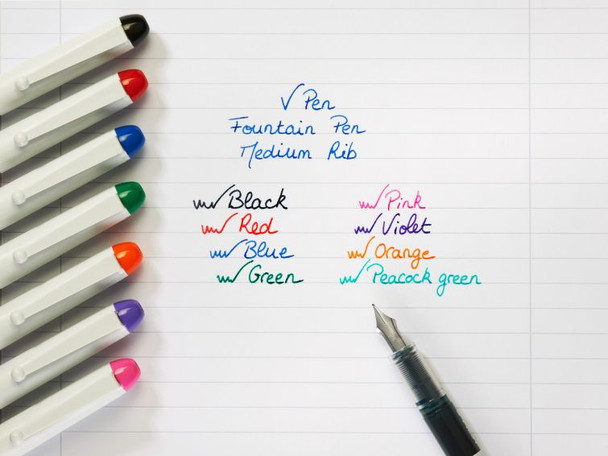 √ Pen
Fountain Pen
Medium Rib
Black
Red
Blue
Green
Pink
Violet
Orange
Peacock green